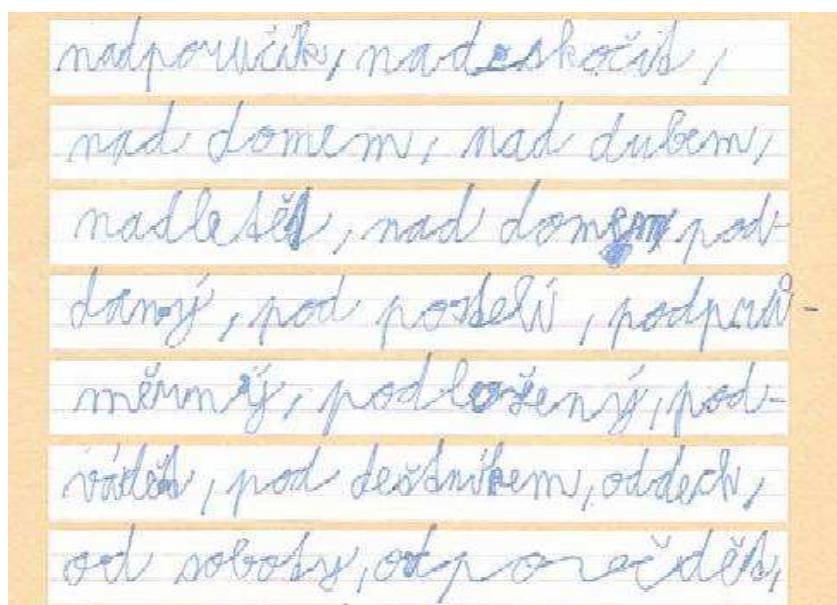 nadporučík, nadeskočit,
nad domem, nad dubem,
nadletět, nad domem, pod-
daný, pod postelí, podprů-
měrný, podložený, pod-
vádět, pod deštníkem, oddech,
od soboty,